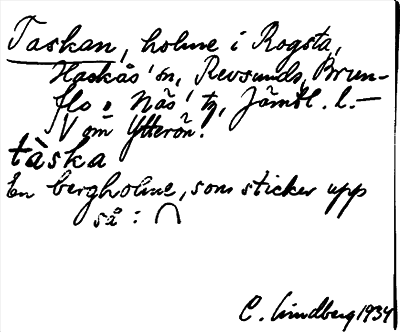 Taskan, holme i Rogsta,
Haskås'ön, Revsunds, Brun-
flo o Näs' tg, Jämtl. l.—
NV om Ytterön.
tàska
En bergholme, som sticker upp
så: ∩
C. Lindberg 1934